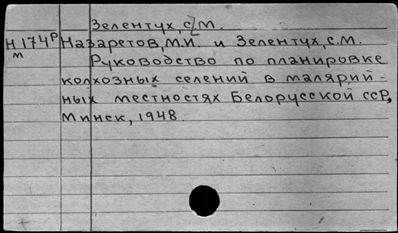 Зелентух, С. М.
Н 174 р Назаретов, М.И. и Зелентух, С.М.
м
Руководство по планировке
колхозных селений в малярий-
ных местностях Белорусской ССР,
Минск, 1948.